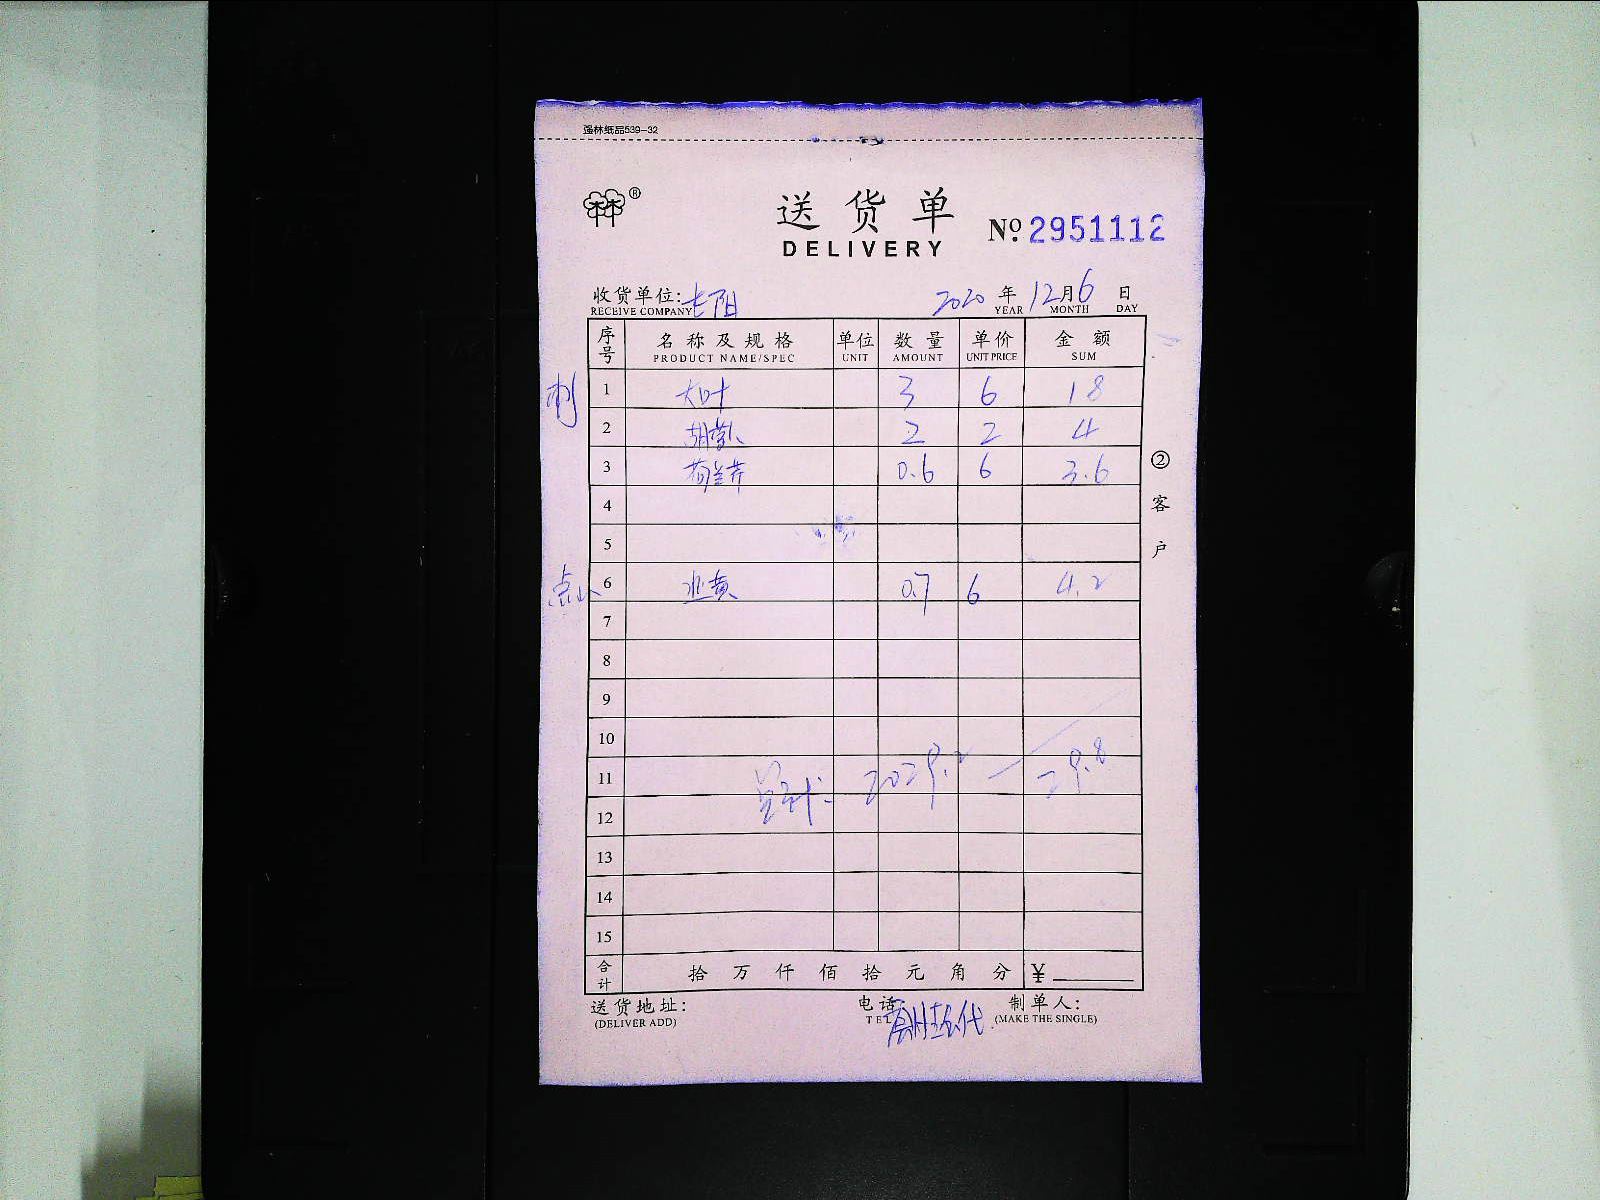 强林纸品539-32
林®
送货单 Nº. 2951112
DELIVERY
收货单位: 七阳 2020 年 12 月 6 日
RECEIVE COMPANY YEAR MONTH DAY
序号 名称及规格 单位 数量 单价 金额
PRODUCT NAME/SPEC UNIT AMOUNT UNIT PRICE SUM
刺 1 大叶 3 6 18
2 胡萝卜 2 2 4
3 荷兰芹 0.6 6 3.6
4
5
点心 6 韭黄 0.7 6 4.2
7
8
9
10
11 2029.2 29.8
12
13
14
15
合计 拾 万 仟 佰 拾 元 角 分 ¥
送货地址: 电话: 制单人:
(DELIVER ADD) TEL (MAKE THE SINGLE)
②客户